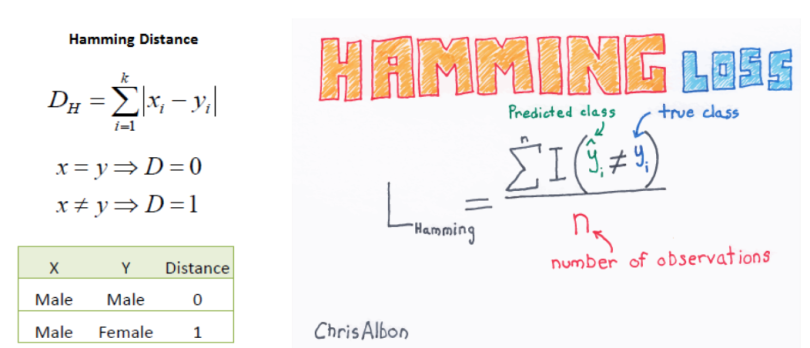 Hamming Distance
D_H = \sum_{i=1}^{k} |x_i - y_i|
x = y ⇒ D = 0
x ≠ y ⇒ D = 1
X Y Distance
Male Male 0
Male Female 1
HAMMING LOSS
Predicted class true class
L_Hamming = \frac{\sum^{n} I(ŷ_i ≠ y_i)}{n}
number of observations
Chris Albon